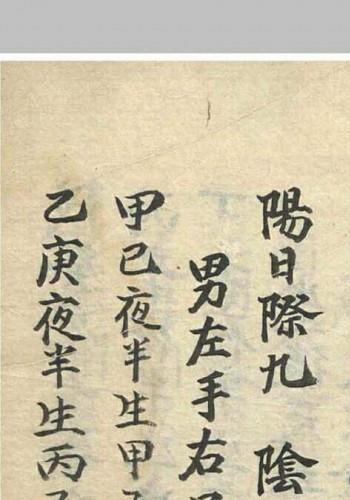 陽日際九 陰
男左手右
甲己夜半生甲
乙庚夜半生丙